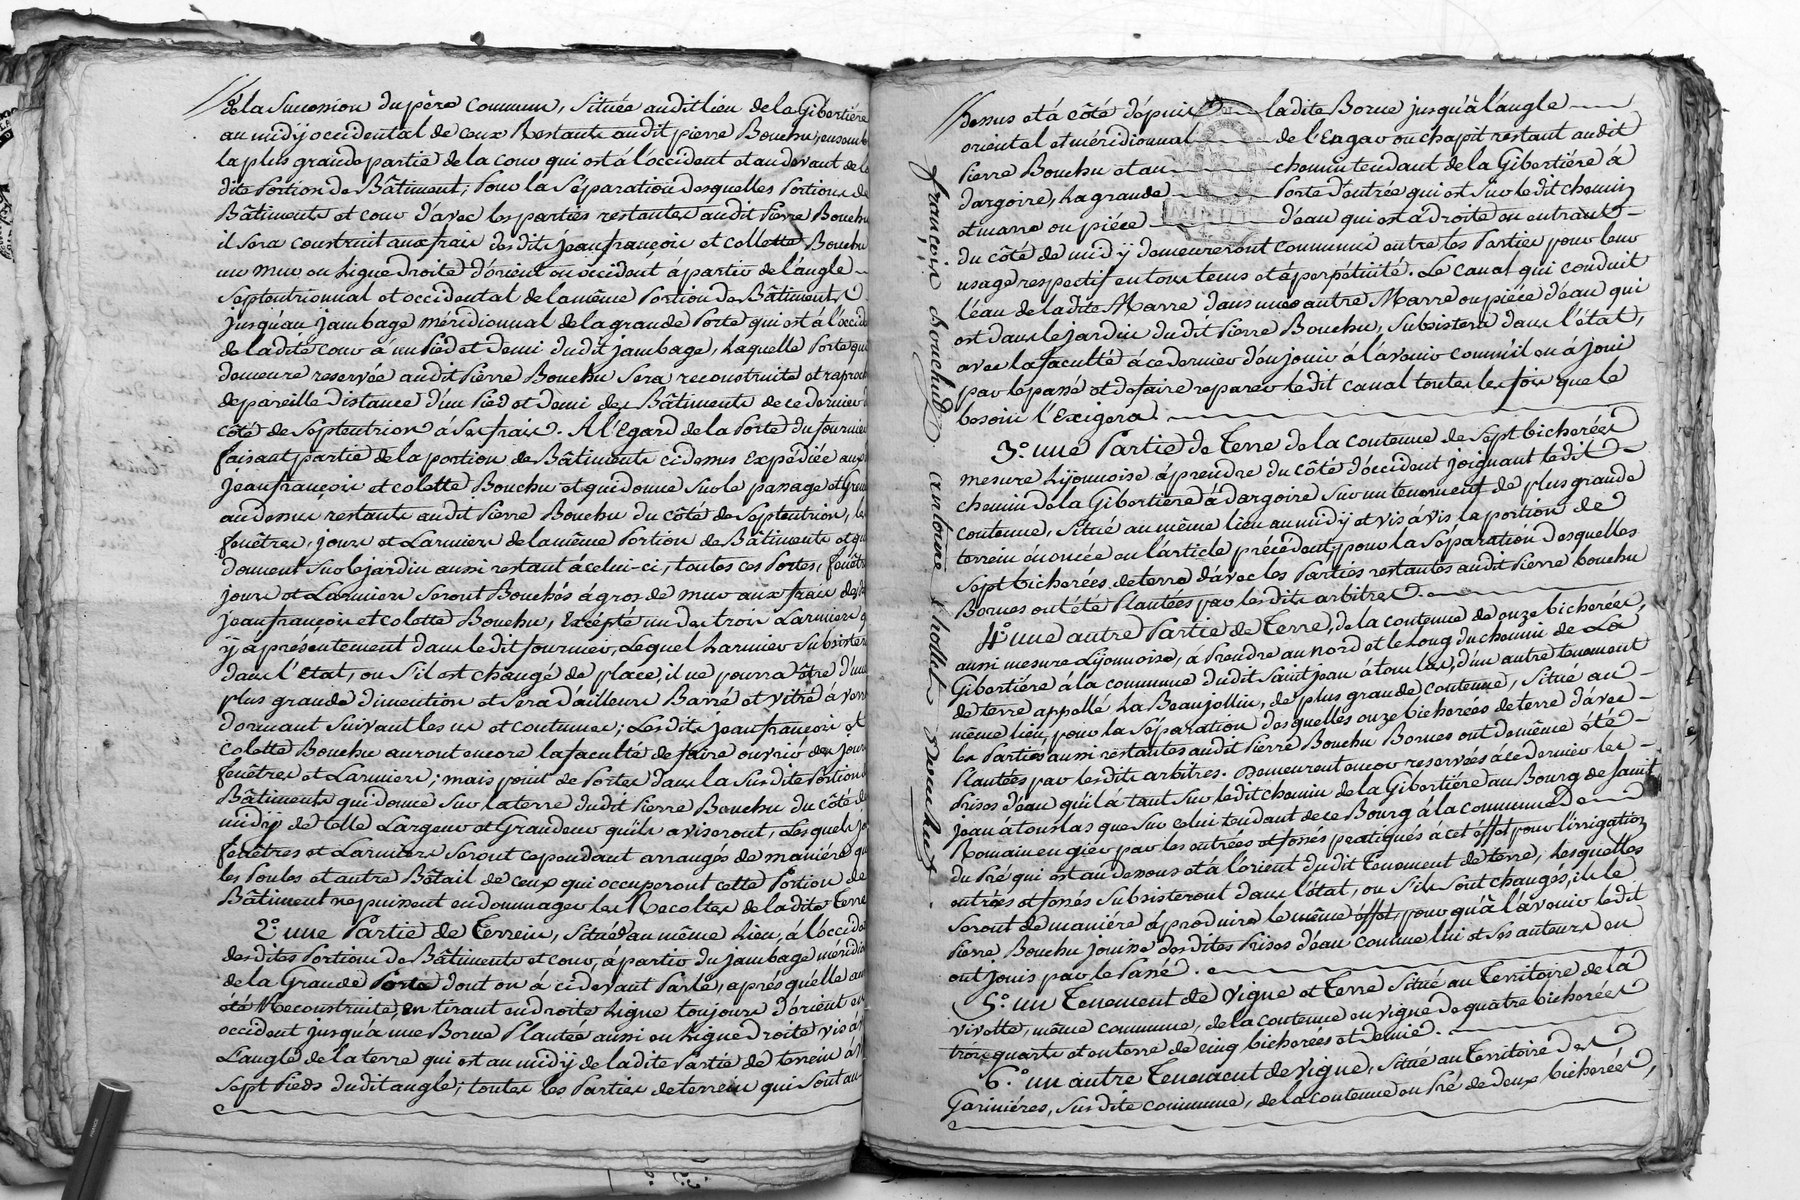 de la Succession du père commun, Située audit lieu de la Gibertiére
au midy occidental de ceux Restants audit pierre Bouchu, ensemb
la plus grande partie de la cour qui est à l'occident et au devant de la
dite Portion de Bâtiment; Pour la Séparation desquelles Portions de
Bâtiments et cour d'avec les parties restantes audit Pierre Bouchu
il sera construit aux frais desdits jeanfrançois et collette Bouchu
un mur en Ligne droite d'orient en occident, à partir de l'angle
Septentrionnal et occidental de la même Portion de Bâtiments
jusqu'au jambage méridionnal de la grande Porte qui est à l'occid
de ladite cour à un Pied et Demi dudit jambage, Laquelle Porte qui
demeure reservée audit Pierre Bouchu Sera reconstruite et raproch
de pareille distance d'un Pied et Demi des Bâtiments de ce dernier
côté de Septentrion à Ses frais. A l'Egard de la Porte du fournier
faisant partie de la portion de Bâtiments cidessus Expédiée aux
jeanfrançois et colette Bouchu et qui donne Sur le passage et Gren
au dessus restants audit Pierre Bouchu du côté de Septentrion, les
fenêtres, jours et Larmiers de la même Portion de Bâtiments et qui
donnent Sur le jardin aussi restant à celui-ci, toutes ces Portes, fenêtr
jours et Larmiers Seront Bouchés à gros de mur aux frais desd
jeanfrançois et colette Bouchu, Excépté un des trois Larmiers q
ÿ à présentement dans ledit fournier, Lequel Larmier Subsistera
dans l'Etat, ou S'il est changé de place, il ne pourra être d'une
plus grande dimention et Sera d'ailleurs Barré et vitré à verre
dormant suivant les us et coutumes; Lesdits jeanfrançois et
Colette Bouchu auront encore la faculté de faire ouvrir des jours
fenêtres et Larmiers; mais point de Portes dans la Susdite Portion
Bâtiments qui donne Sur la terre dudit Pierre Bouchu du côté de
midÿ de telle Largeur et Grandeur qu'ils aviseront, Lesquels jo
fenêtres et Larmiers Seront cependant arrangés de maniére que
les Poules et autre Bétail de ceux qui occuperont cette Portion de
Bâtiment ne puissent endommager les Recoltes de ladite Terre
2.° une Partie de Terrein, Située au même Lieu, à l'occide
desdites Portions de Bâtiments et cour, à partir du jambage méridio
de la Grande Porte dont on à cidevant Parlé, après qu'elle aura
été Reconstruite, en tirant en droite Ligne toujours d'orient en
occident jusqu'à une Borne Plantée aussi en Ligne droite vis à v
L'angle de la terre qui est au midÿ de ladite Partie de terrein à
Sept Pieds dudit angle; toutes les Parties de terrein qui Sont au
dessus et à côté dépuis ladite Borne jusqu'à l'angle
oriental et méridionnal de l'Engar ou chapit restant audit
Pierre Bouchu et au chemin tendant de la Gibertiére à
dargoire, La grande Porte d'entrée qui est Sur ledit chemin
et marre ou piéce d'eau qui est à droite en entrant
MINUTE
du côté de midÿ demeureront communs entre les Parties pour leur
usage respectif en tous tems et à perpétuité. Le canal qui conduit
l'eau de ladite Marre dans une autre Marre ou piéce d'eau qui
est dans le jardin dudit Pierre Bouchu, Subsistera dans l'état,
avec la faculté à ce dernier d'en jouir à l'avenir comme il en à joui
par le passé et de faire reparer ledit canal toutes les fois que le
besoin l'Exigera.
3.° une Partie de Terre de la contenue de Sept bicherées
mesure Lÿonnoise à prendre du côté d'occident joignant ledit
chemin de la Gibertiére à dargoire Sur un tenement de plus grande
contenue, Situé au même lieu au midÿ et vis à vis la portion de
terrein énoncée en l'article précédent; pour la Séparation desquelles
Sept bicherées de terre d'avec les Parties restantes audit Pierre bouchu
Bornes ont été Plantées par lesdits arbitres.
4.° une autre Partie de Terre, de la contenue de onze bicherées,
aussi mesure Lÿonnoise, à Prendre au nord et le Long du chemin de La
Gibertiére à la commune dudit Saint jean à tous las, d'un autre tenement
de terre appellé La Beaujollin, de plus grande contenue, Situé au
même lieu, pour la Séparation desquelles onze bicherées de terre d'avec
les Parties aussi restantes audit Pierre Bouchu Bornes ont de même été
Plantées par lesdits arbitres. Demeurent encor reservées à ce dernier les
Prises d'eau qu'il à tant Sur ledit chemin de la Gibertiére au Bourg de Saint
jean à tous las que Sur celui tendant de ce Bourg à la commune de
Romain en gier par les entrées et fossés pratiqués à cet éffet pour l'irrigation
du Pré qui est au dessous et à l'orient dudit Tenement de terre; Lesquelles
entrées et fossés Subsisteront dans l'état, ou S'ils Sont changés, ils le
Seront de maniére à produire le même éffet, pour qu'à l'avenir ledit
Pierre Bouchu jouisse desdites Prises d'eau comme lui et Ses auteurs en
ont jouis par le Passé.
5.° un Tenement de vigne et Terre Situé au Territoire de la
vivotte, même commune, de la contenue en vigne de quatre bicherées
trois quarts et en terre de cinq bicherées et demie.
6.° un autre Tenement de vigne, Situé au Territoire des
Garinières, Susdite commune, de la contenue en Pré de deux bicherées,
françois bouchu